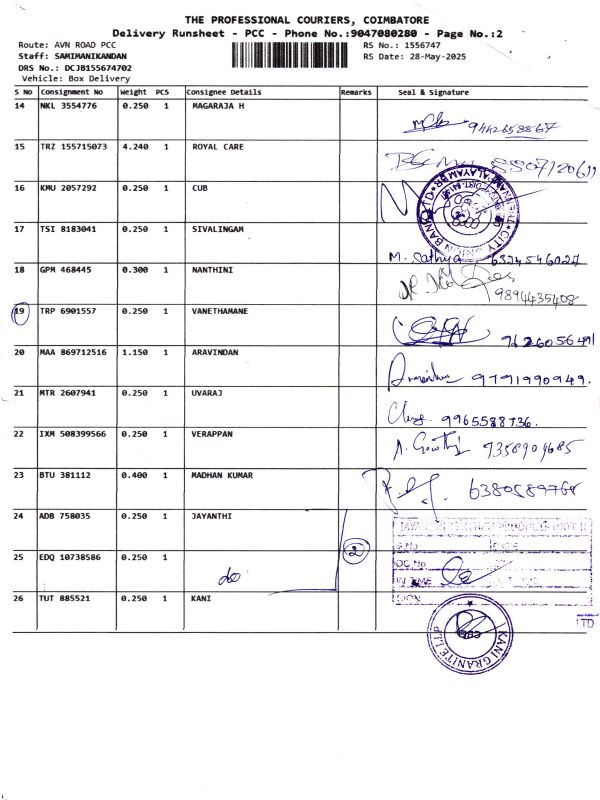 THE PROFESSIONAL COURIERS, COIMBATORE
Delivery Runsheet - PCC - Phone No.:9047080280 - Page No.:2
Route: AVN ROAD PCC RS No.: 1556747
Staff: SAMIMANIKANDAN RS Date: 28-May-2025
DRS No.: DCJB155674702
Vehicle: Box Delivery
S No Consignment No Weight PCS Consignee Details Remarks Seal & Signature
14 NKL 3554776 0.250 1 MAGARAJA H
9442658867
15 TRZ 155715073 4.240 1 ROYAL CARE
16 KMU 2057292 0.250 1 CUB
CITY UNION BANK
17 TSI 8183041 0.250 1 SIVALINGAM
M. Sathya 6374546027
18 GPM 468445 0.300 1 NANTHINI
9894435408
19 TRP 6901557 0.250 1 VANETHAMANE
9626056491
20 MAA 869712516 1.150 1 ARAVINDAN
9791990949.
21 MTR 2607941 0.250 1 UVARAJ
9965588736.
22 IXM 508399566 0.250 1 VERAPPAN
A. Gowthj 9358909685
23 BTU 381112 0.400 1 MADHAN KUMAR
6380589768
24 ADB 758035 0.250 1 JAYANTHI
2
25 EDQ 10738586 0.250 1
do
IN TIME
26 TUT 885521 0.250 1 KANI
KANI GRANITE
LTD